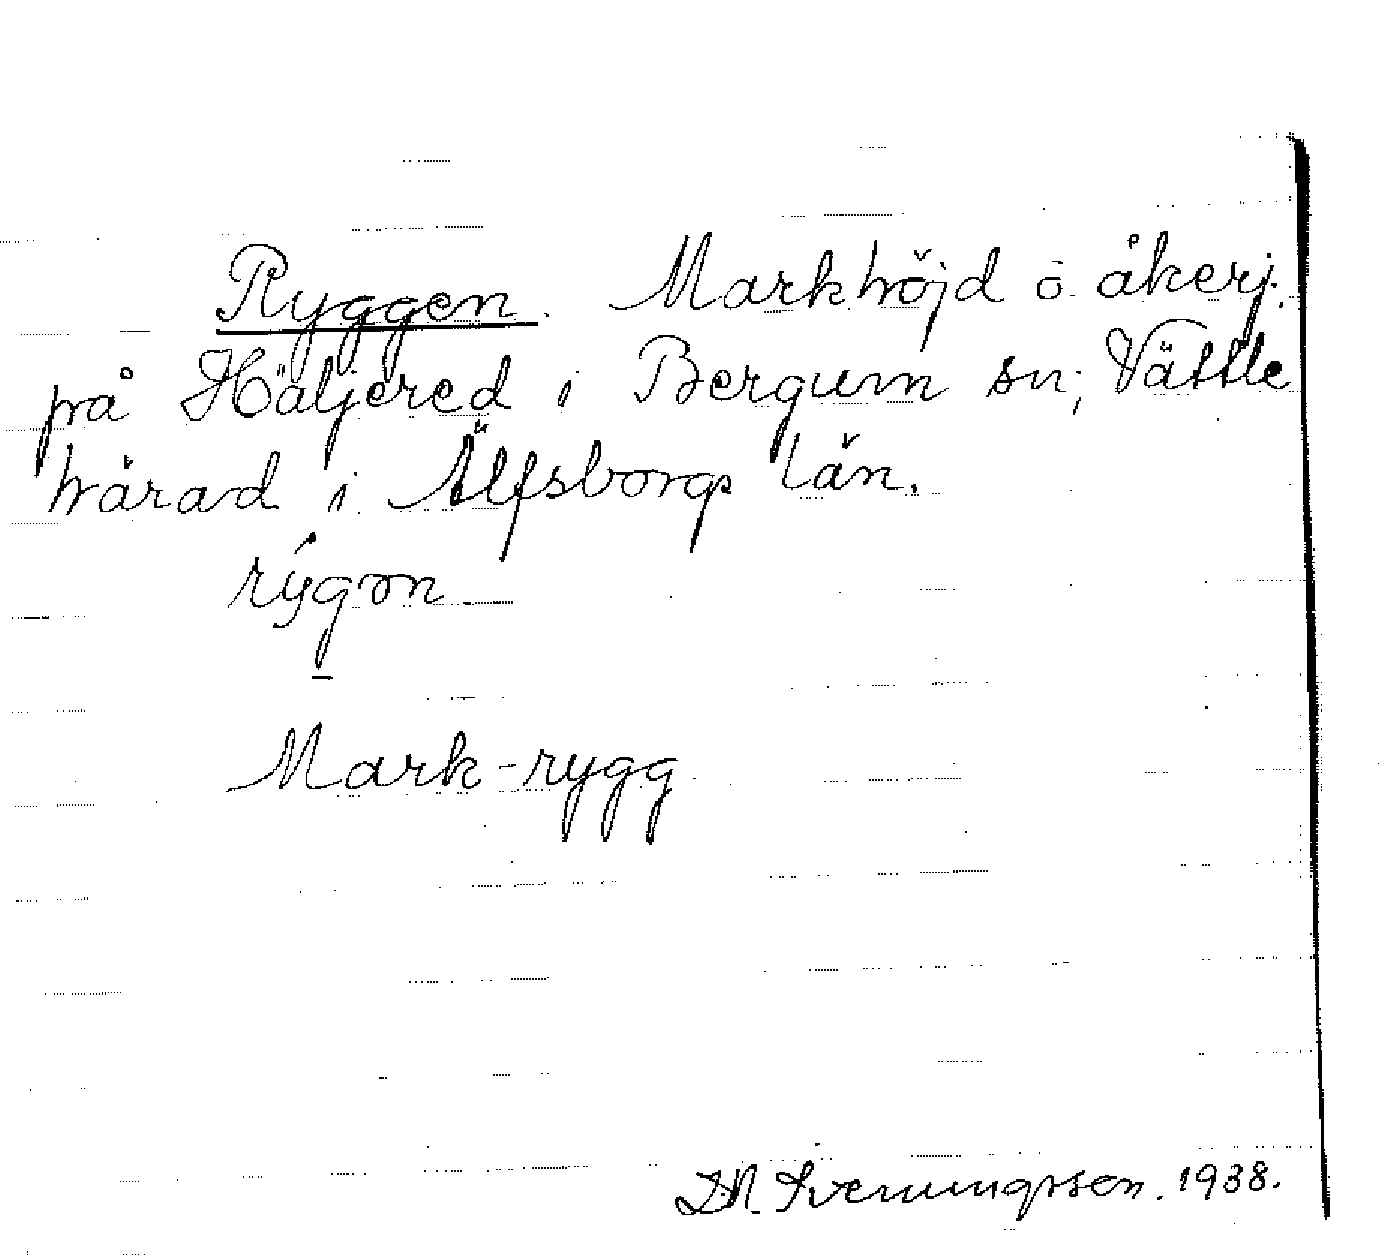 Ryggen. Markhöjd o åkerj.
på Häljered i Bergum sn; Vättle
härad i Älfsborgs län.
rýgon
Mark-rygg
Sverungssen. 1938.